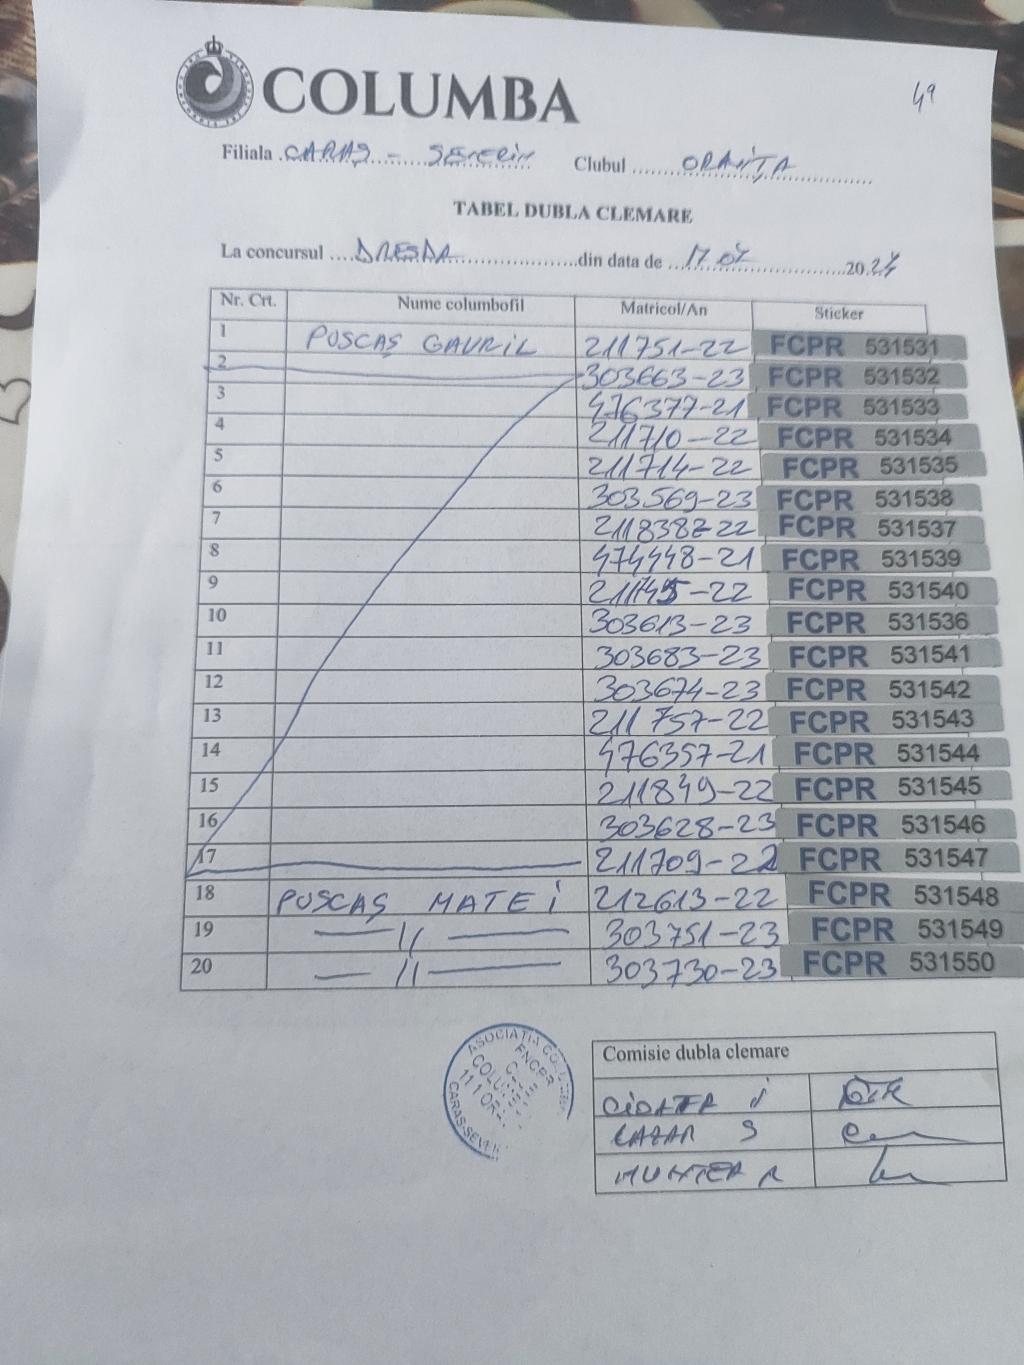 COLUMBA
49
Filiala CARAȘ - SEVERIN Clubul ORAVIȚA
TABEL DUBLA CLEMARE
La concursul DRESDA din data de 17 07 2024
Nr. Crt. Nume columbofil Matricol/An Sticker
1 PUSCAȘ GAVRIL 211751-22 FCPR 531531
2 303663-23 FCPR 531532
3 476377-21 FCPR 531533
4 211710-22 FCPR 531534
5 211714-22 FCPR 531535
6 303569-23 FCPR 531538
7 211838-22 FCPR 531537
8 474448-21 FCPR 531539
9 211745-22 FCPR 531540
10 303613-23 FCPR 531536
11 303683-23 FCPR 531541
12 303674-23 FCPR 531542
13 211757-22 FCPR 531543
14 476357-21 FCPR 531544
15 211849-22 FCPR 531545
16 303628-23 FCPR 531546
17 211709-22 FCPR 531547
18 PUSCAȘ MATEI 212613-22 FCPR 531548
19 —//— 303751-23 FCPR 531549
20 —//— 303730-23 FCPR 531550
ASOCIAȚIA COLUMBA
FNCPR
CARAS-SEVERIN
Comisie dubla clemare
LAZAR S